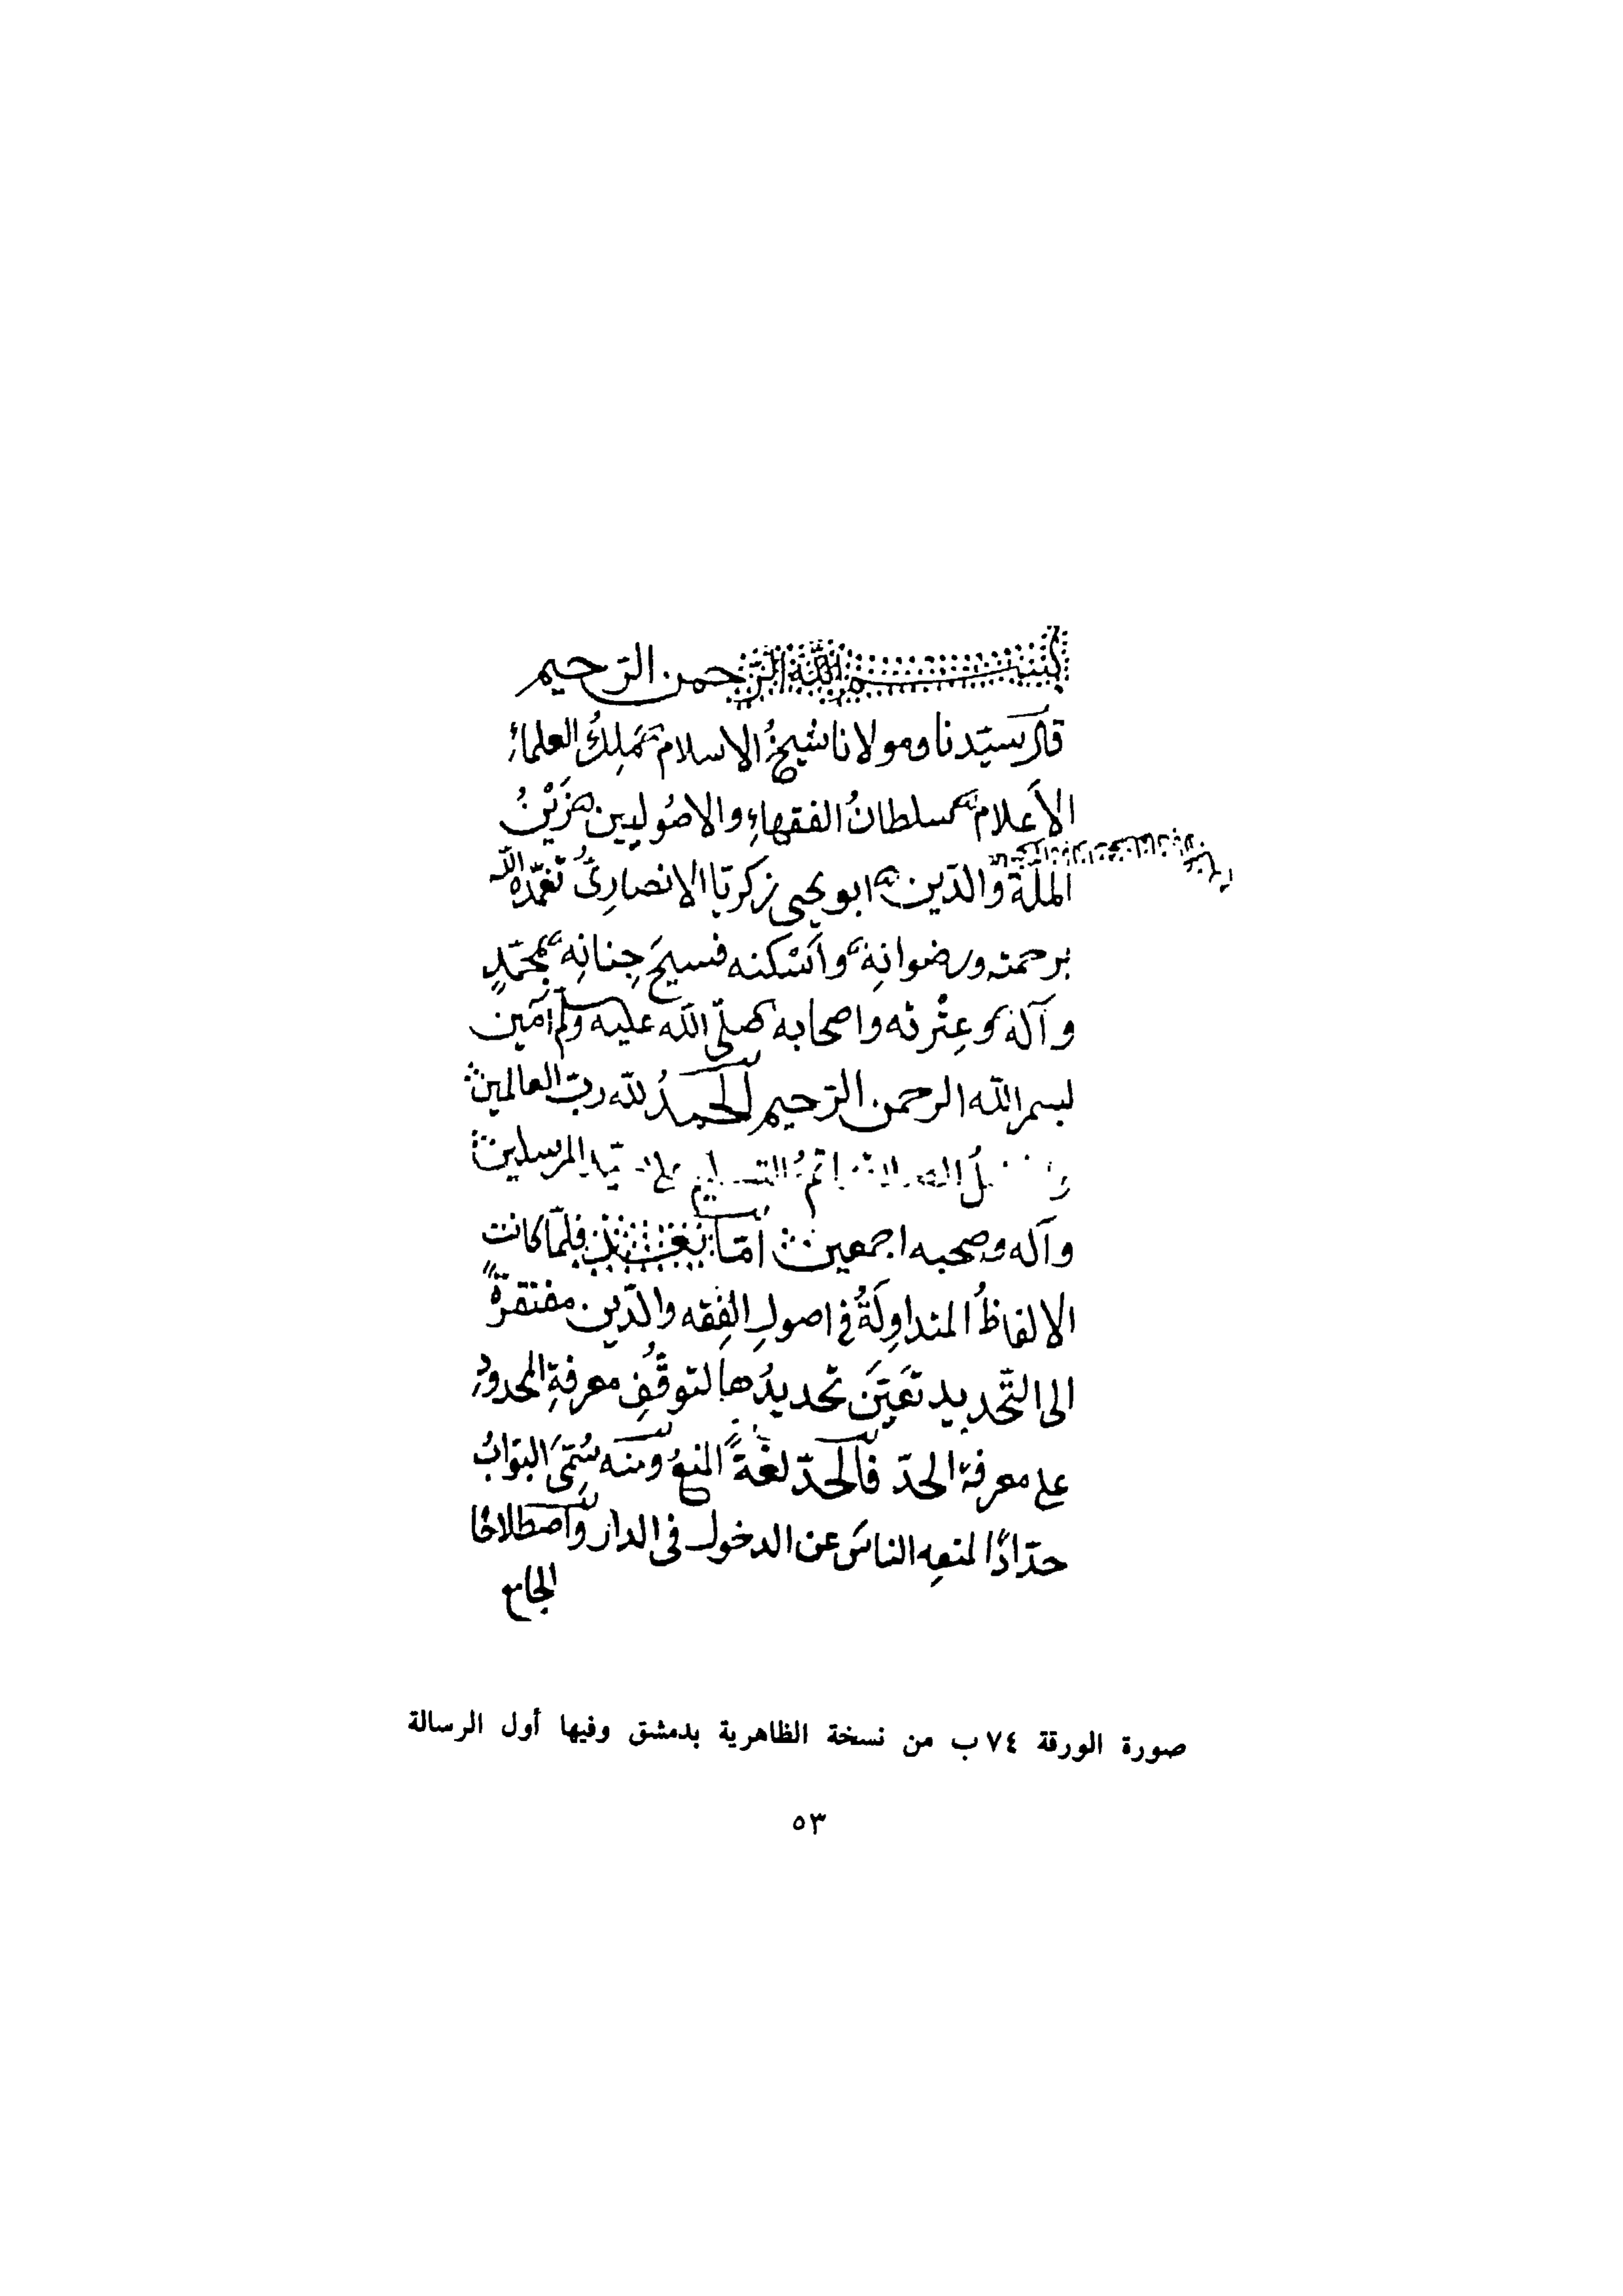 بسم الله الرحمن الرحيم
قال سيّدنا ومولانا شيخُ الاسلام مَلِكُ العلماءِ
الأعلام سلطانُ الفقهاءِ والاصُوليين زَيْنُ
الملّة والدّين ابو يحيى زكريّا الانصارىُّ تغمّده الله
برحمته ورضوانِه وأسْكنه فسيحَ جِنانِه بمحمّدٍ
وآله وعِتْرته واصحابه صلّى الله عليه وسلم آمين
بسم الله الرحمن الرّحيم الحمدُ لله ربّ العالمين
التسليم على المرسلين
وآله وصحبه اجمعين أمّا بعد فلمّا كانت
الالفاظُ المتداوِلَةُ فى اصولِ الفِقه والدّين مفتقرةً
الى التّحديد تعَيّنَ تحديدُها لتوقُّفِ معرفةِ المحدودِ
على معرفة الحدّ فالحدّ لغةً المنعُ ومنه سُمّىَ البوّابُ
حدّادًا لمنعِه الناسَ عن الدخول فى الدار واصطلاحًا
الجامع
صورة الورقة ٧٤ ب من نسخة الظاهرية بدمشق وفيها أول الرسالة
٥٣